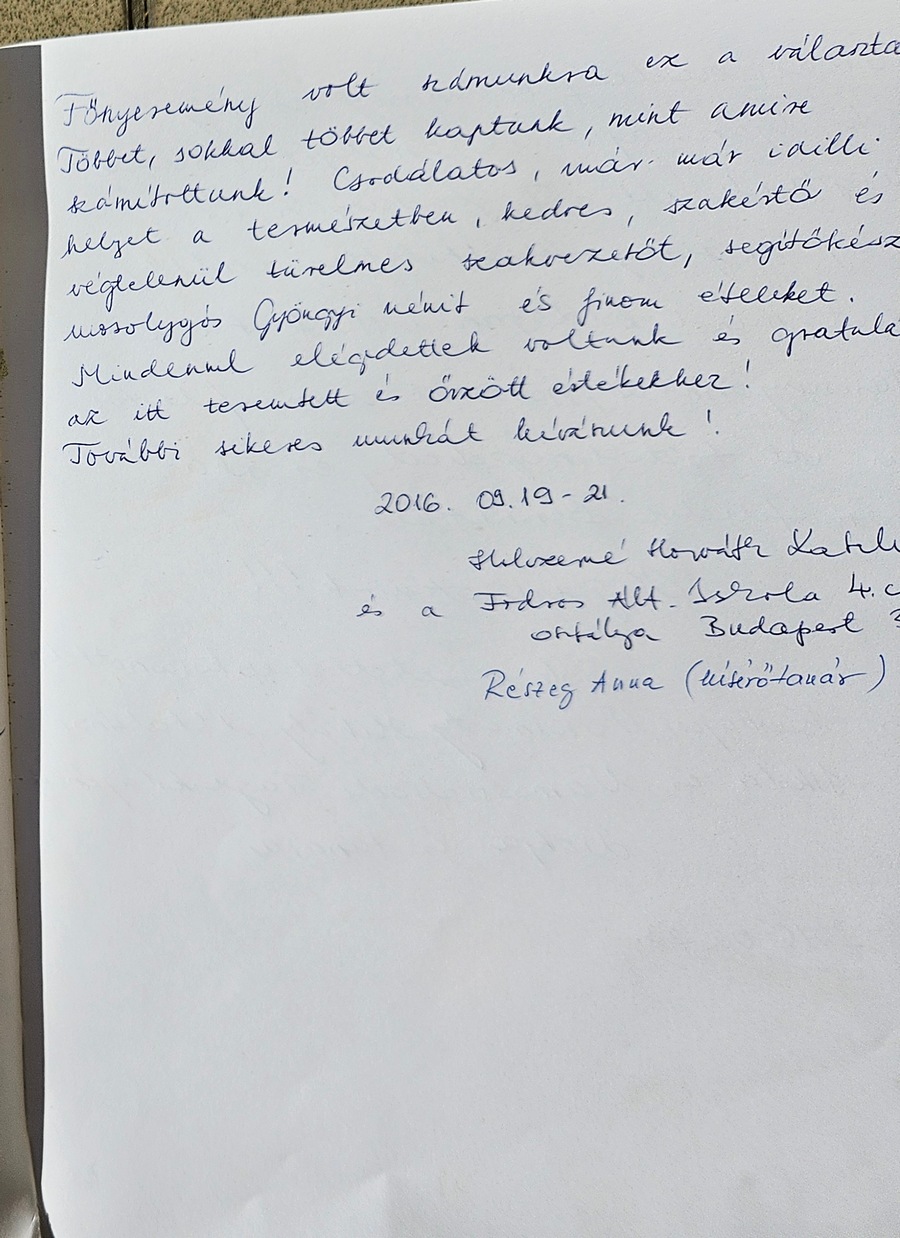 Főnyeremény volt számunkra ez aválaszta
Többet, sokkal többet kaptunk, mint amire
számítottunk! Csodálatos, már-már idilli
helyet a természetben, kedves, szakértő és
végtelenül türelmes szakvezetőt, segítőkész
mosolygós Gyöngyi nénit és finom ételeket.
Mindennel elégedettek voltunk és gratulá
az itt teremtett és őrzött értékekhez!
További sikeres munkát kívánunk!
2016. 09.19-21.
Horváth
és a Fodros Ált. Iskola 4.c
osztálya Budapest 3
Részeg Anna (kísérőtanár)